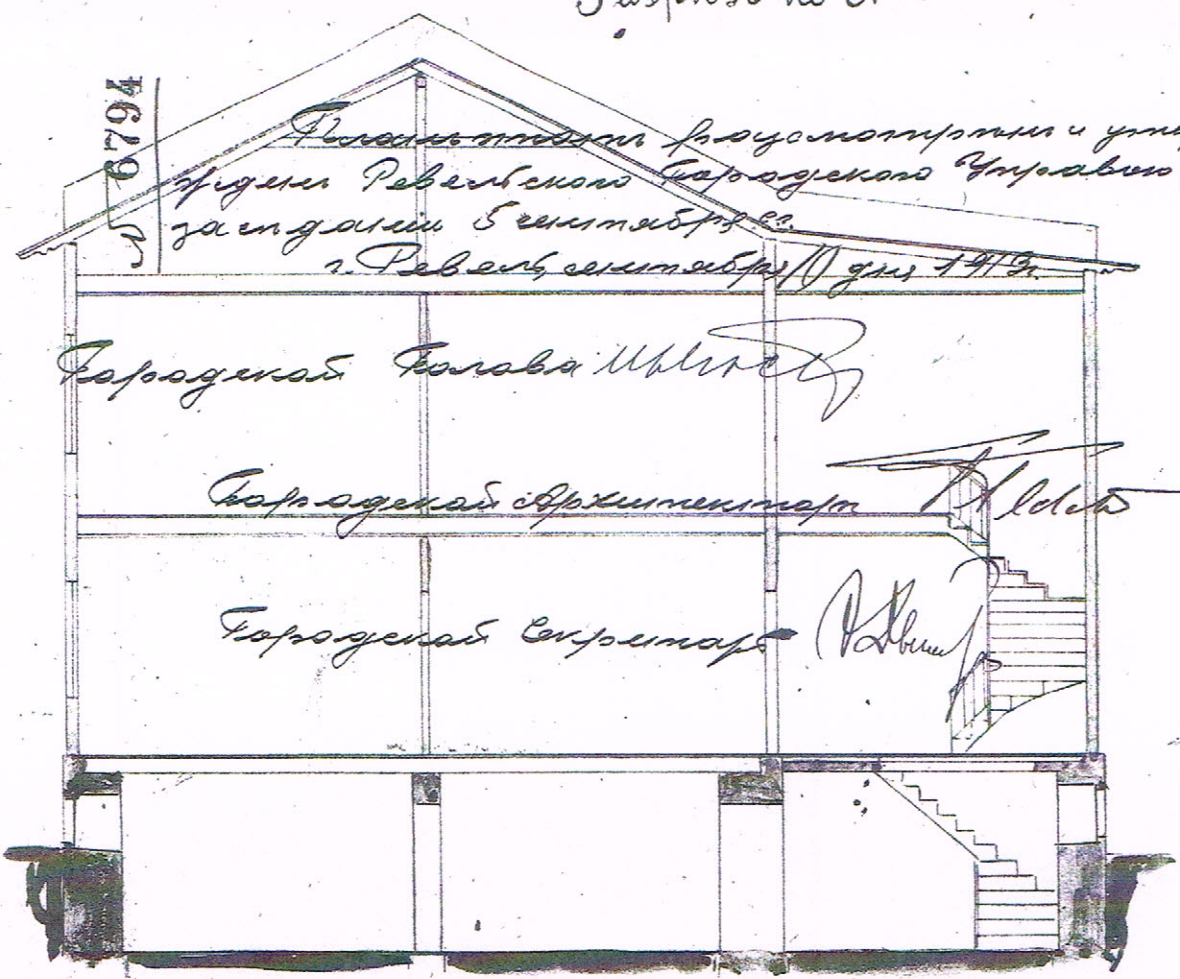 Разрѣзъ по
№ 6794
Планъ этотъ разсмотрѣнъ и утвер
жденъ Ревельскою Городскою Управою
засѣданіи 5 сентября с.г.
г. Ревель, сентября 10 дня 1913г.
Городской Голова
Городской Архитекторъ
Городской Секретарь